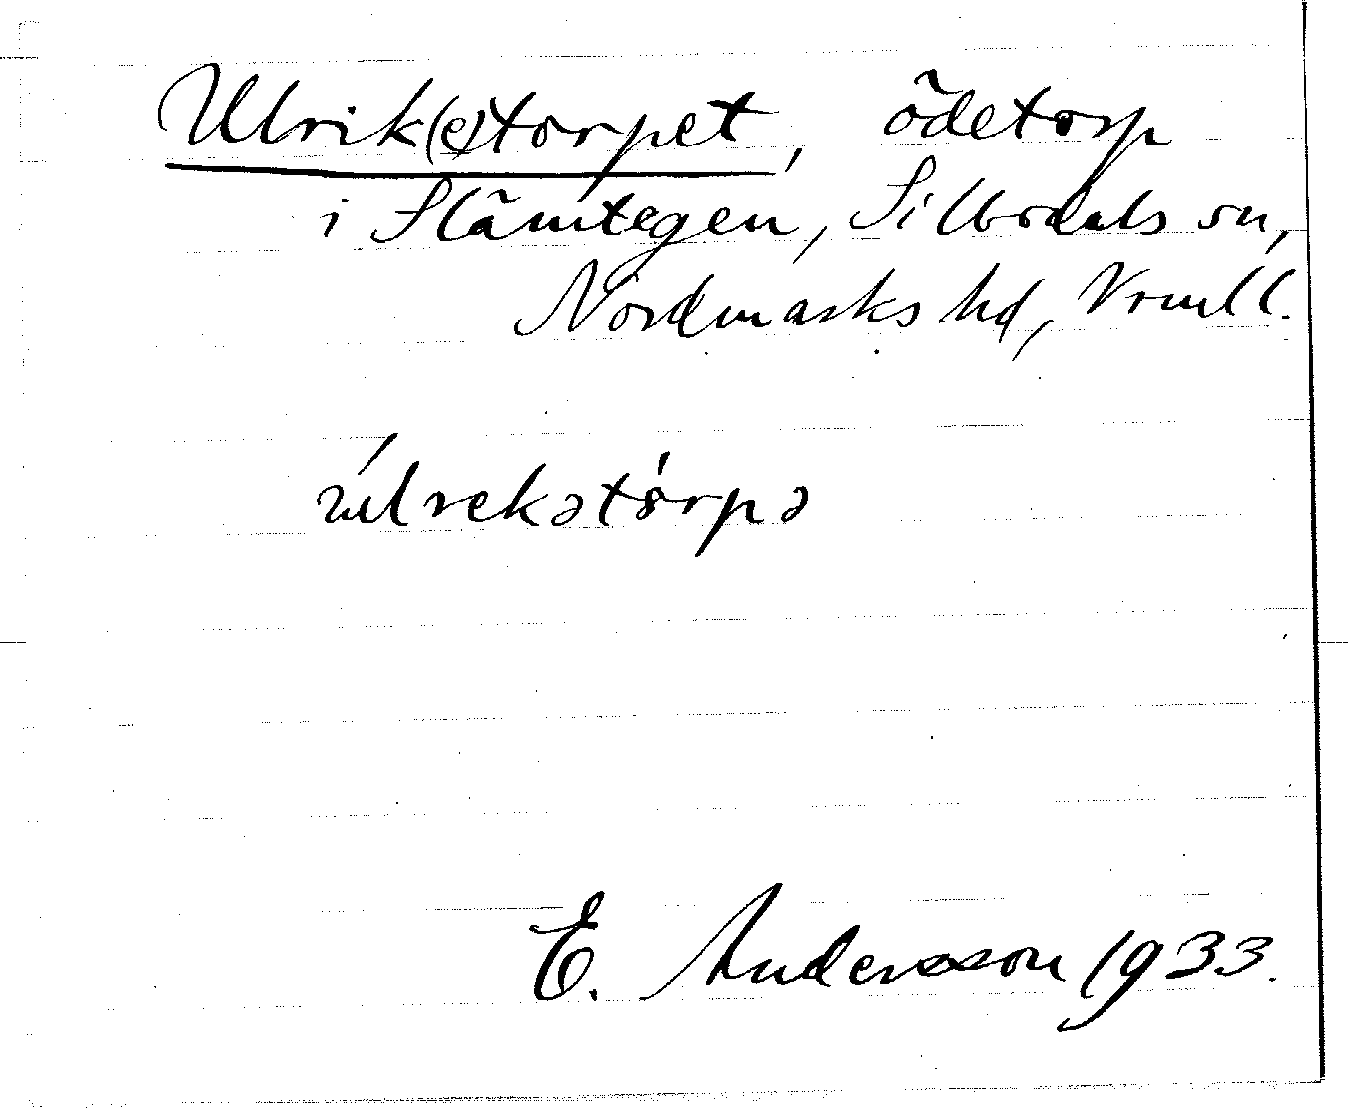 Ulrik(e)torpet, ödetorp
i Slämtegen, Silbodals sn,
Nordmarks hd, Vrml l.
ulrekətórpə
E. Andersson 1933.